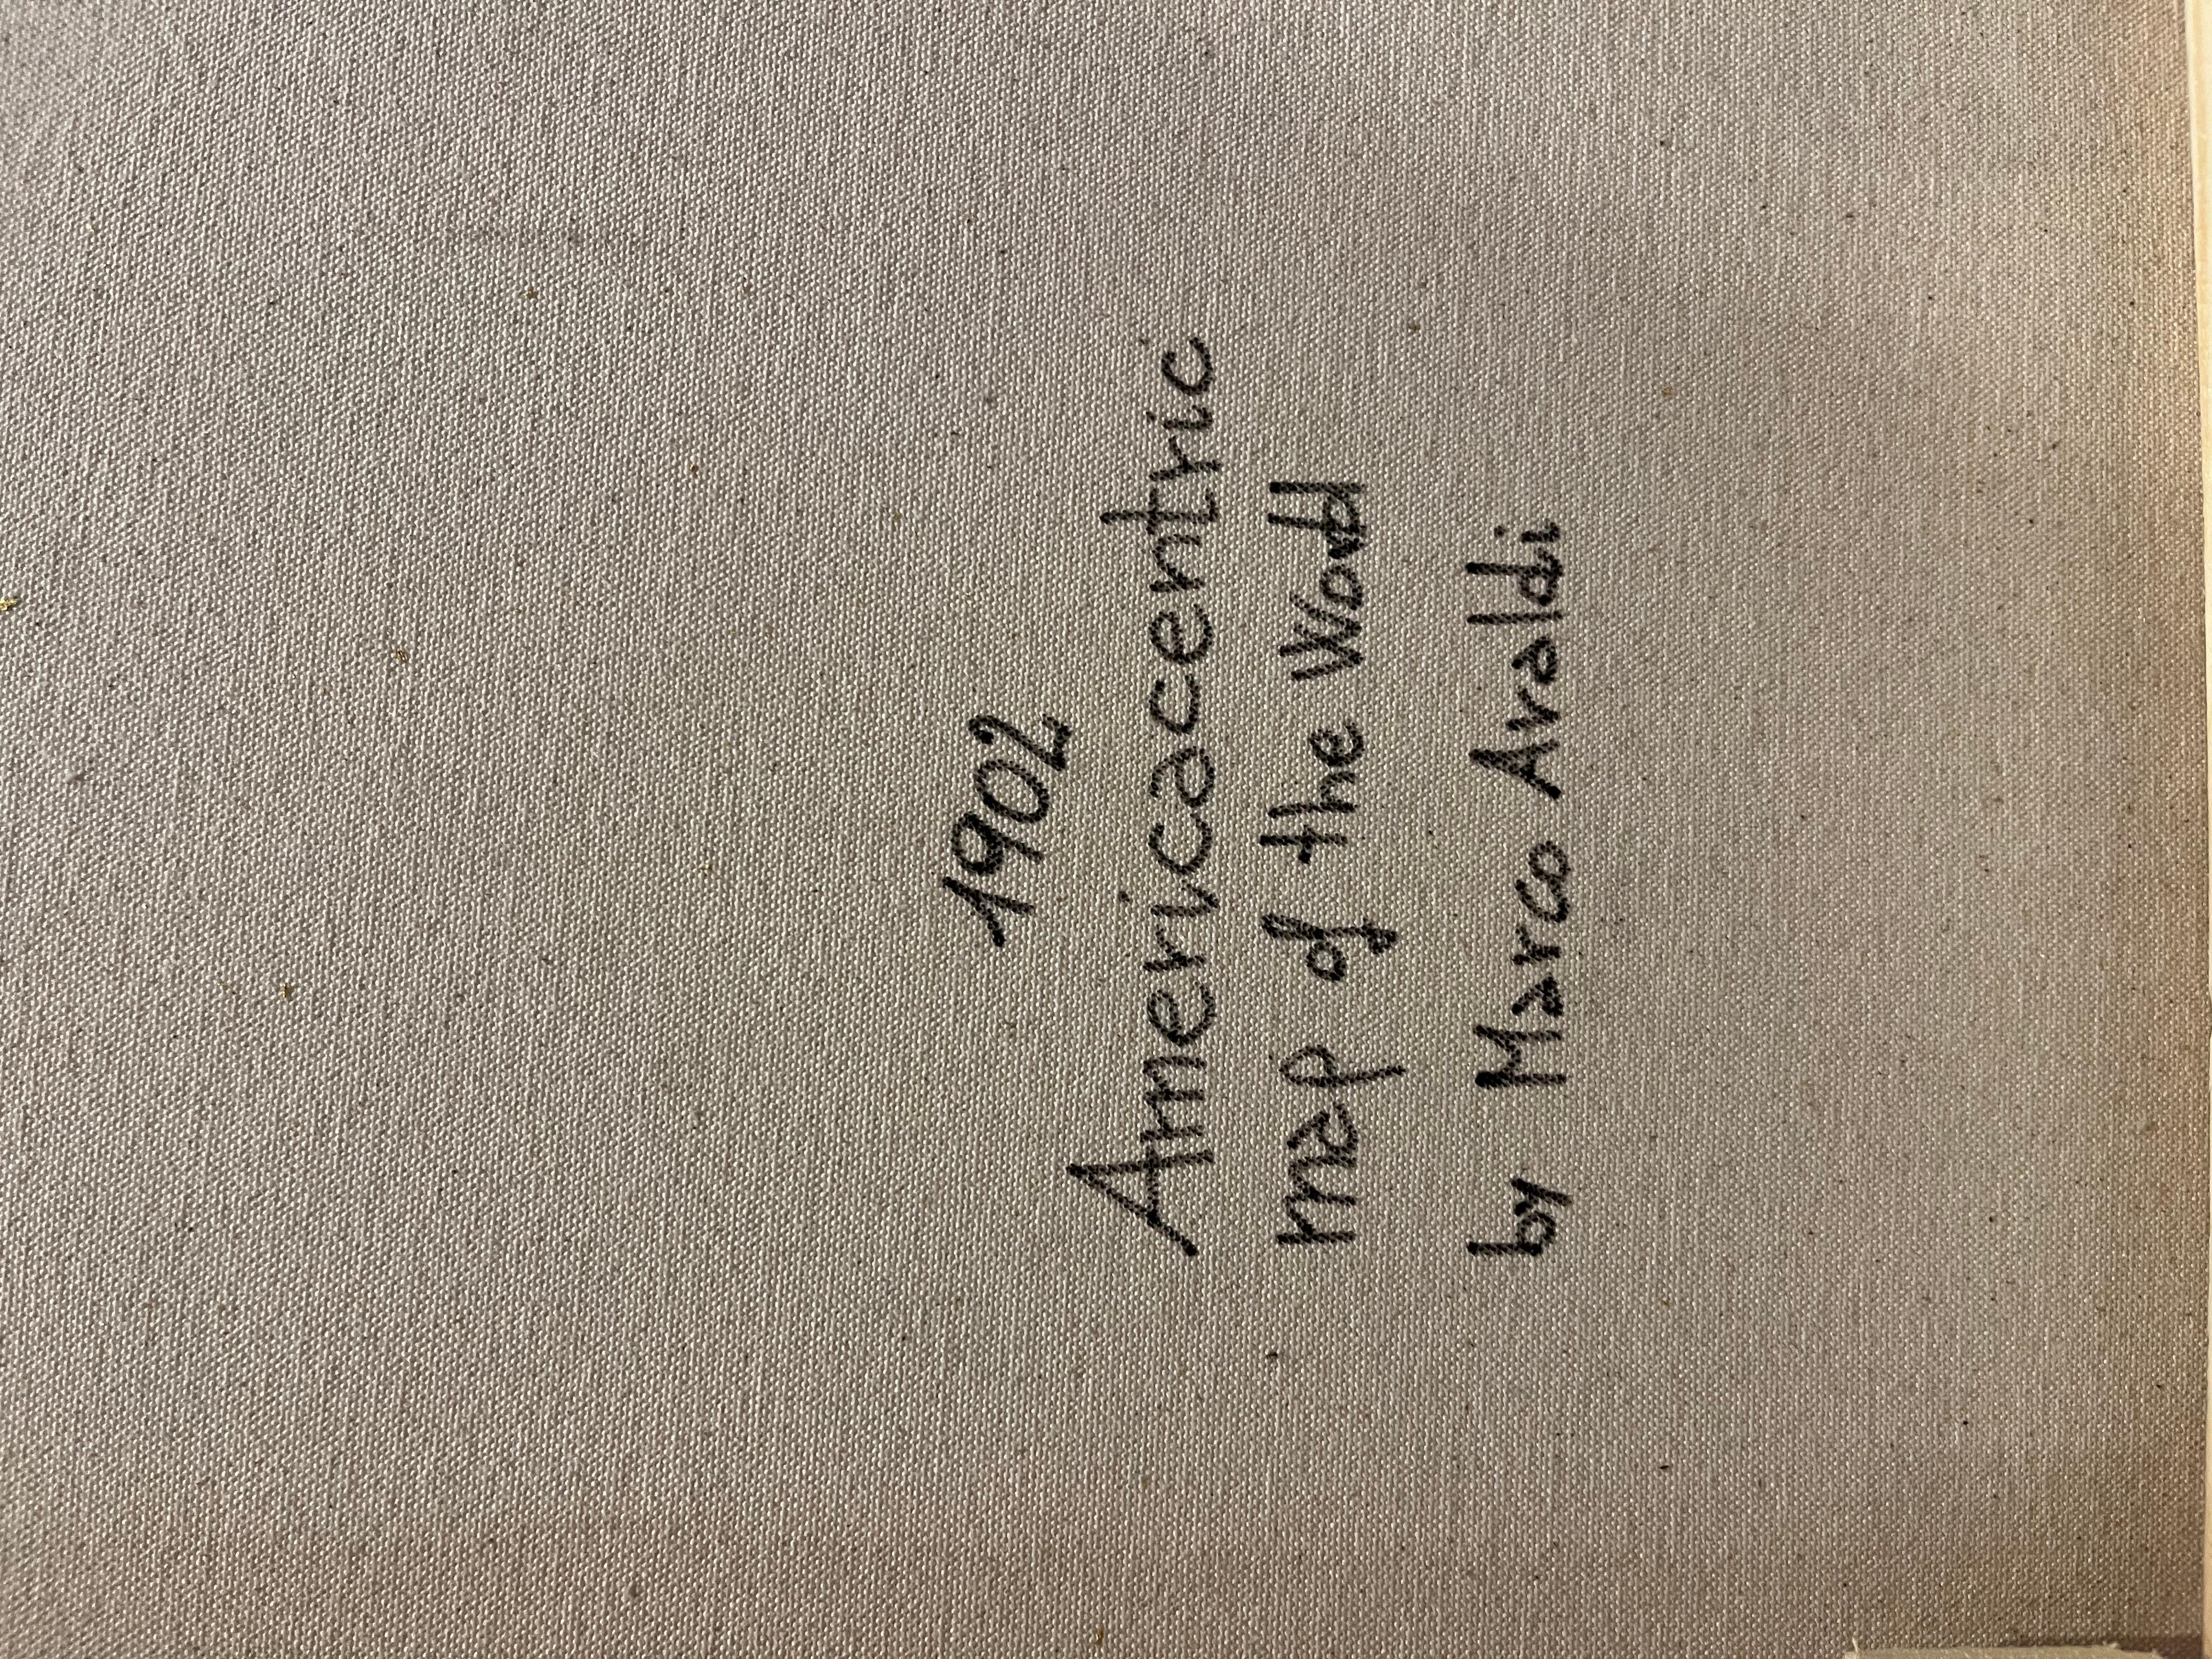 1902
Americacentric
map of the World
by Marco Avaldi